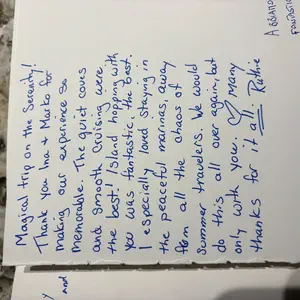 Magical trip on the Serenity!
Thank you Ina + Marko for
making our experience so
memorable. The quiet coves
and smooth cruising were
the best! Island hopping with
you was fantastic. the best.
I especially loved staying in
the peaceful marinas, away
from all the chaos of
summer travelers. We would
do this all over again, but
only with you. ♡ Many
thanks for it all. Ruthie